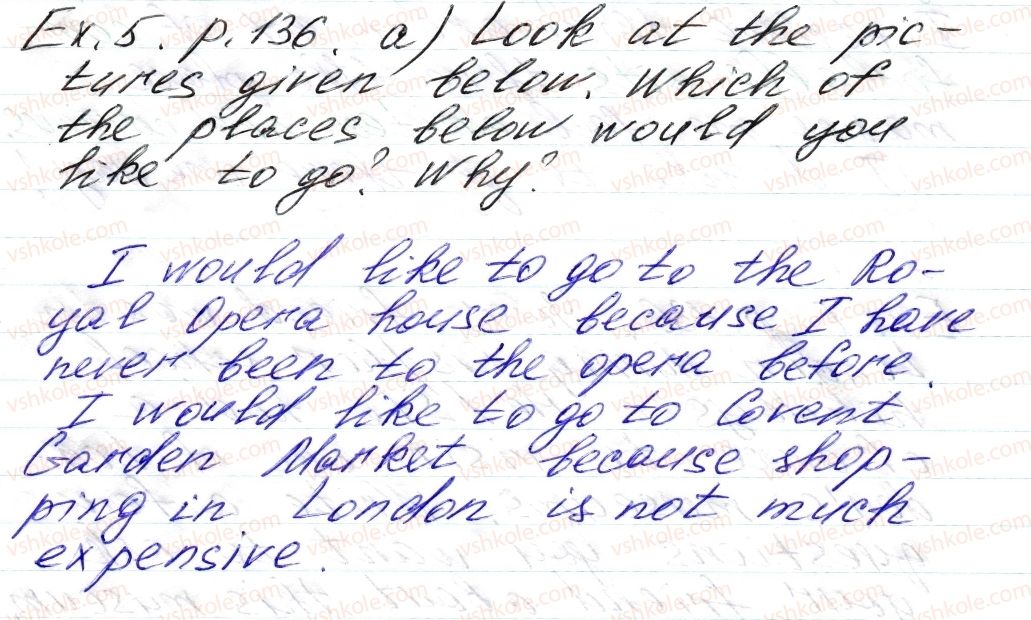 Ex. 5. p. 136. a) Look at the pic-
tures given below. Which of
the places below would you
like to go? Why?
I would like to go to the Ro-
yal Opera house because I have
never been to the opera before.
I would like to go to Covent
Garden Market because shop-
ping in London is not much
expensive.